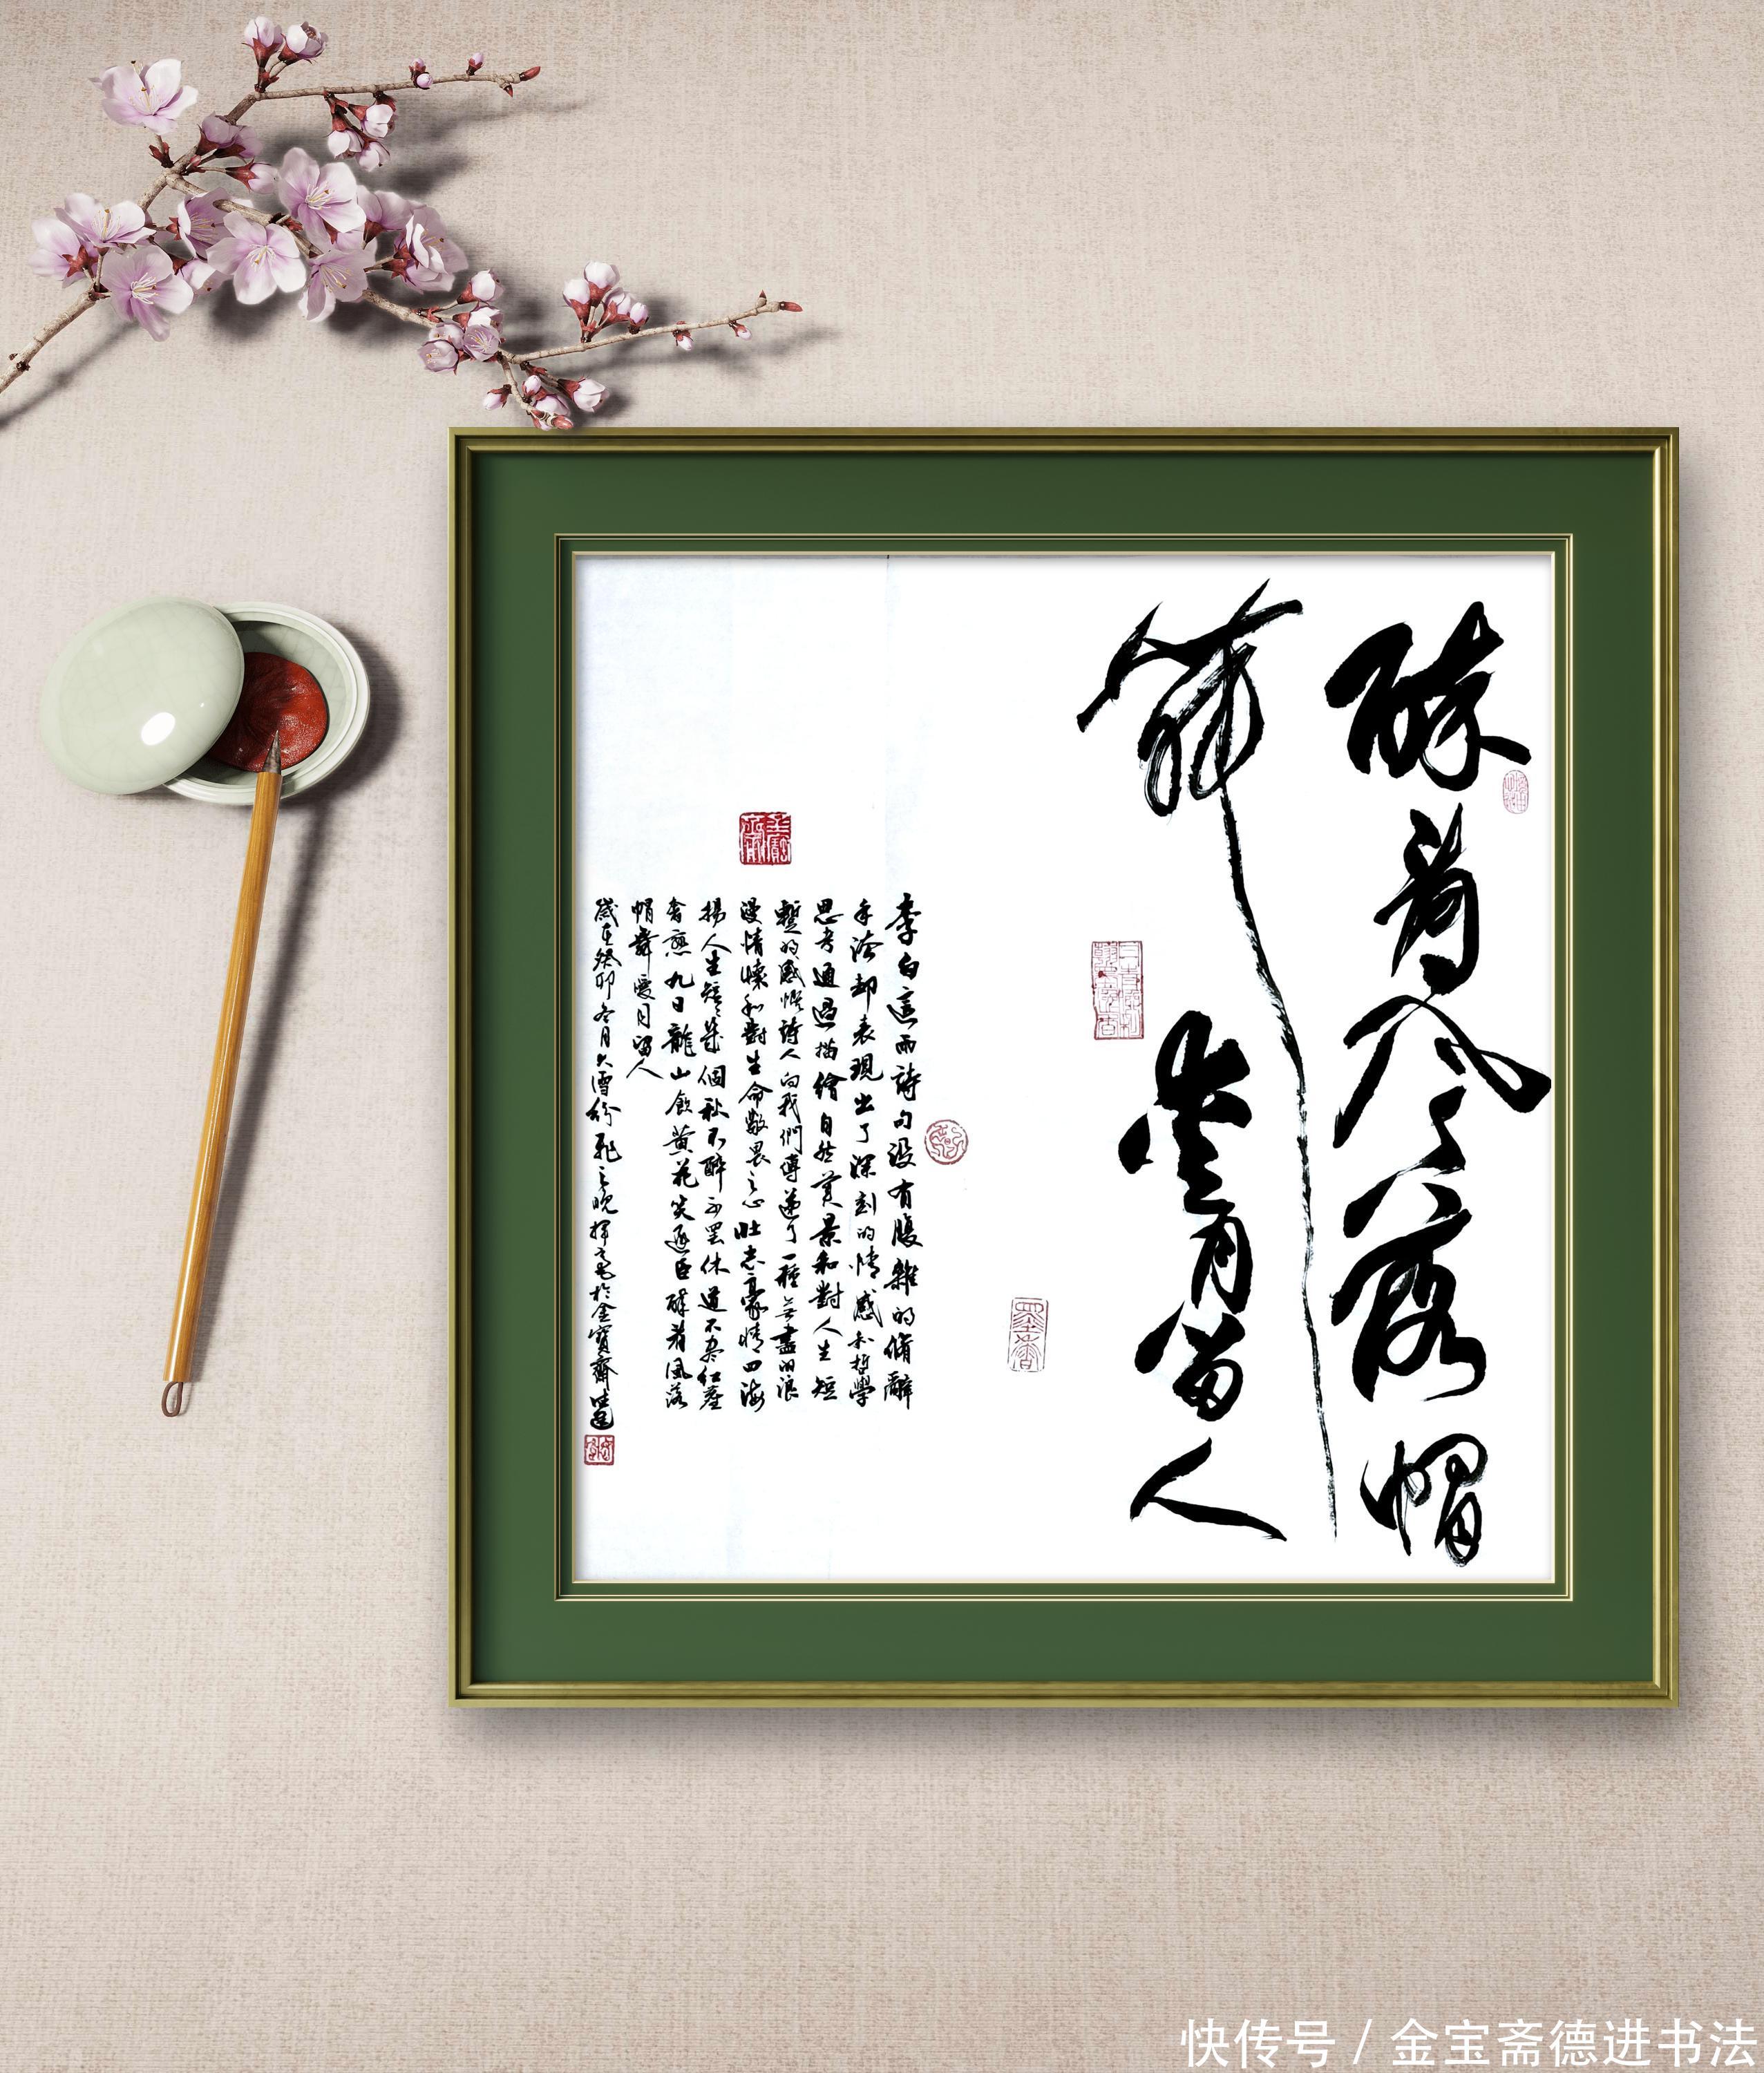 醉看风落帽
舞愛月留人
李白這兩詩句没有腹雜的脩辭
手法却表現出了深刻的情感和哲學
思考通過描繪自然美景和對人生短
暫的感慨詩人向我們傳遞了一種無盡的浪
漫情懷和對生命敬畏之心壯志豪情四海
揚人生短短幾個秋不醉不罷休道不盡紅塵
奢戀九日龍山飲黄花笑逐臣醉看風落
帽舞愛月留人
歲在癸卯冬月大雪紛飛之晚揮毫於金寶齋
快传号 / 金宝斋德进书法